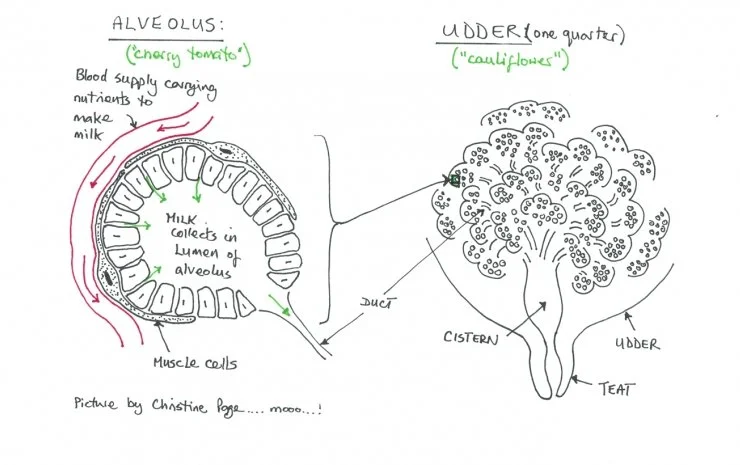 ALVEOLUS:
("cherry tomato")
Blood supply carrying
nutrients to
make
milk
MILK
collects in
Lumen of
alveolus
Muscle cells
Picture by Christine Page.... mooo...!
UDDER (one quarter)
("cauliflower")
DUCT
CISTERN
UDDER
TEAT